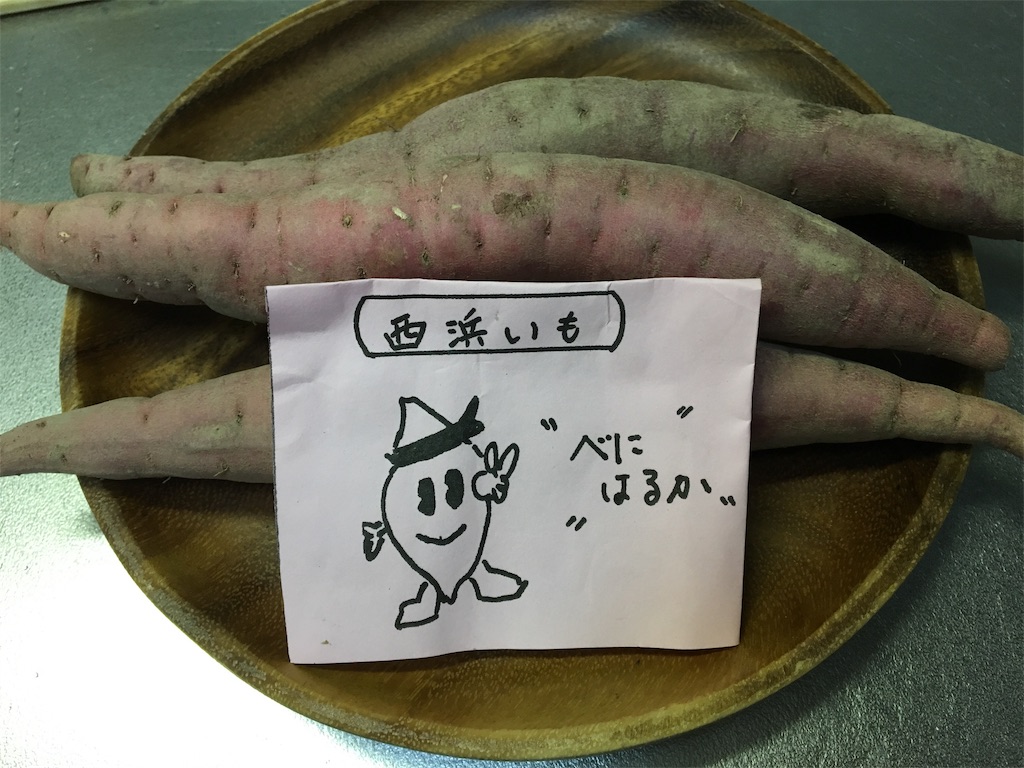 西浜いも
〃べに〃
〃はるか〃